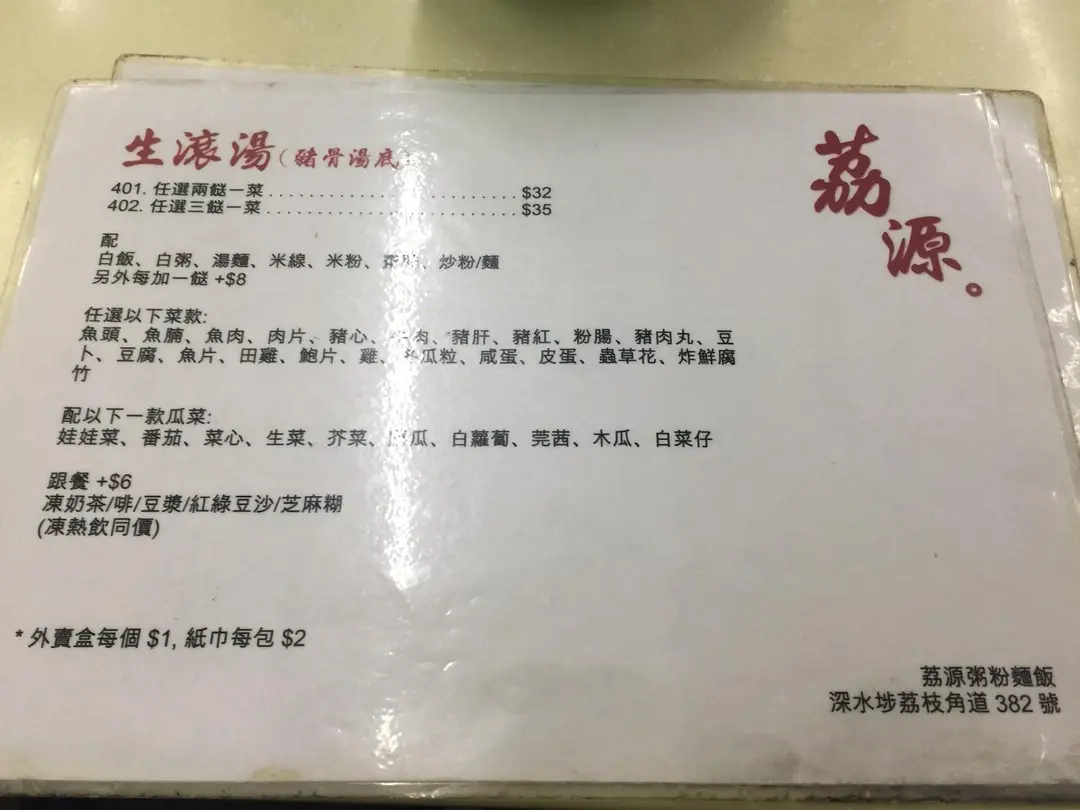 生滾湯(豬骨湯底)
401. 任選兩餸一菜 $32
402. 任選三餸一菜 $35
配
白飯、白粥、湯麵、米線、米粉、 、炒粉/麵
另外每加一餸 +$8
任選以下菜款:
魚頭、魚腩、魚肉、肉片、豬心、 肉、豬肝、豬紅、粉腸、豬肉丸、豆
卜、豆腐、魚片、田雞、鮑片、雞、 瓜粒、咸蛋、皮蛋、蟲草花、炸鮮腐
竹
配以下一款瓜菜:
娃娃菜、番茄、菜心、生菜、芥菜、 瓜、白蘿蔔、莞茜、木瓜、白菜仔
跟餐 +$6
凍奶茶/啡/豆漿/紅綠豆沙/芝麻糊
(凍熱飲同價)
* 外賣盒每個 $1, 紙巾每包 $2
荔源。
荔源粥粉麵飯
深水埗荔枝角道 382 號